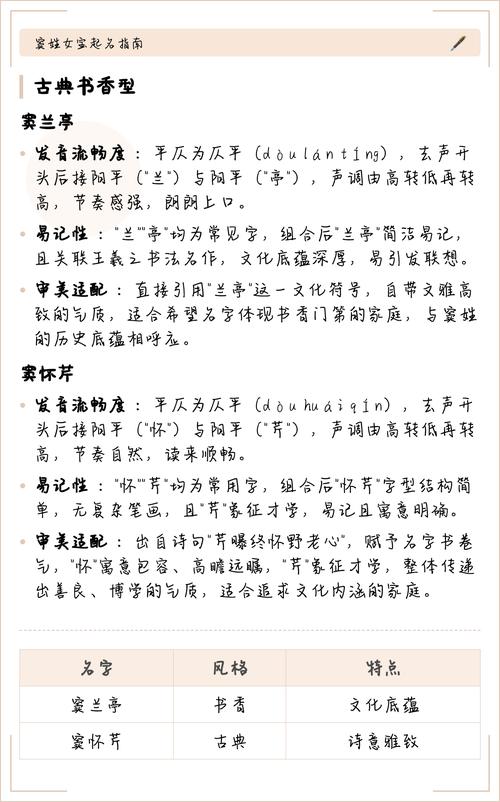 窦姓女宝起名指南
古典书香型
窦兰亭
发音流畅度：平仄为仄平（dòulántíng），去声开
头后接阳平（"兰"）与阳平（"亭"），声调由高转低再转
高，节奏感强，朗朗上口。
易记性："兰""亭"均为常见字，组合后"兰亭"简洁易记，
且关联王羲之书法名作，文化底蕴深厚，易引发联想。
审美适配：直接引用"兰亭"这一文化符号，自带文雅高
致的气质，适合希望名字体现书香门第的家庭，与窦姓
的历史底蕴相呼应。
窦怀芹
发音流畅度：平仄为仄平（dòuhuáiqín），去声开
头后接阳平（"怀"）与阳平（"芹"），声调由高转低再转
高，节奏自然，读来顺畅。
易记性："怀""芹"均为常用字，组合后"怀芹"字型结构简
单，无复杂笔画，且"芹"象征才学，易记且寓意明确。
审美适配：出自诗句"芹曝终怀野老心"，赋予名字书卷
气，"怀"寓意包容、高瞻远瞩，"芹"象征才学，整体传递
出善良、博学的气质，适合追求文化内涵的家庭。
名字 风格 特点
窦兰亭 书香 文化底蕴
窦怀芹 古典 诗意雅致